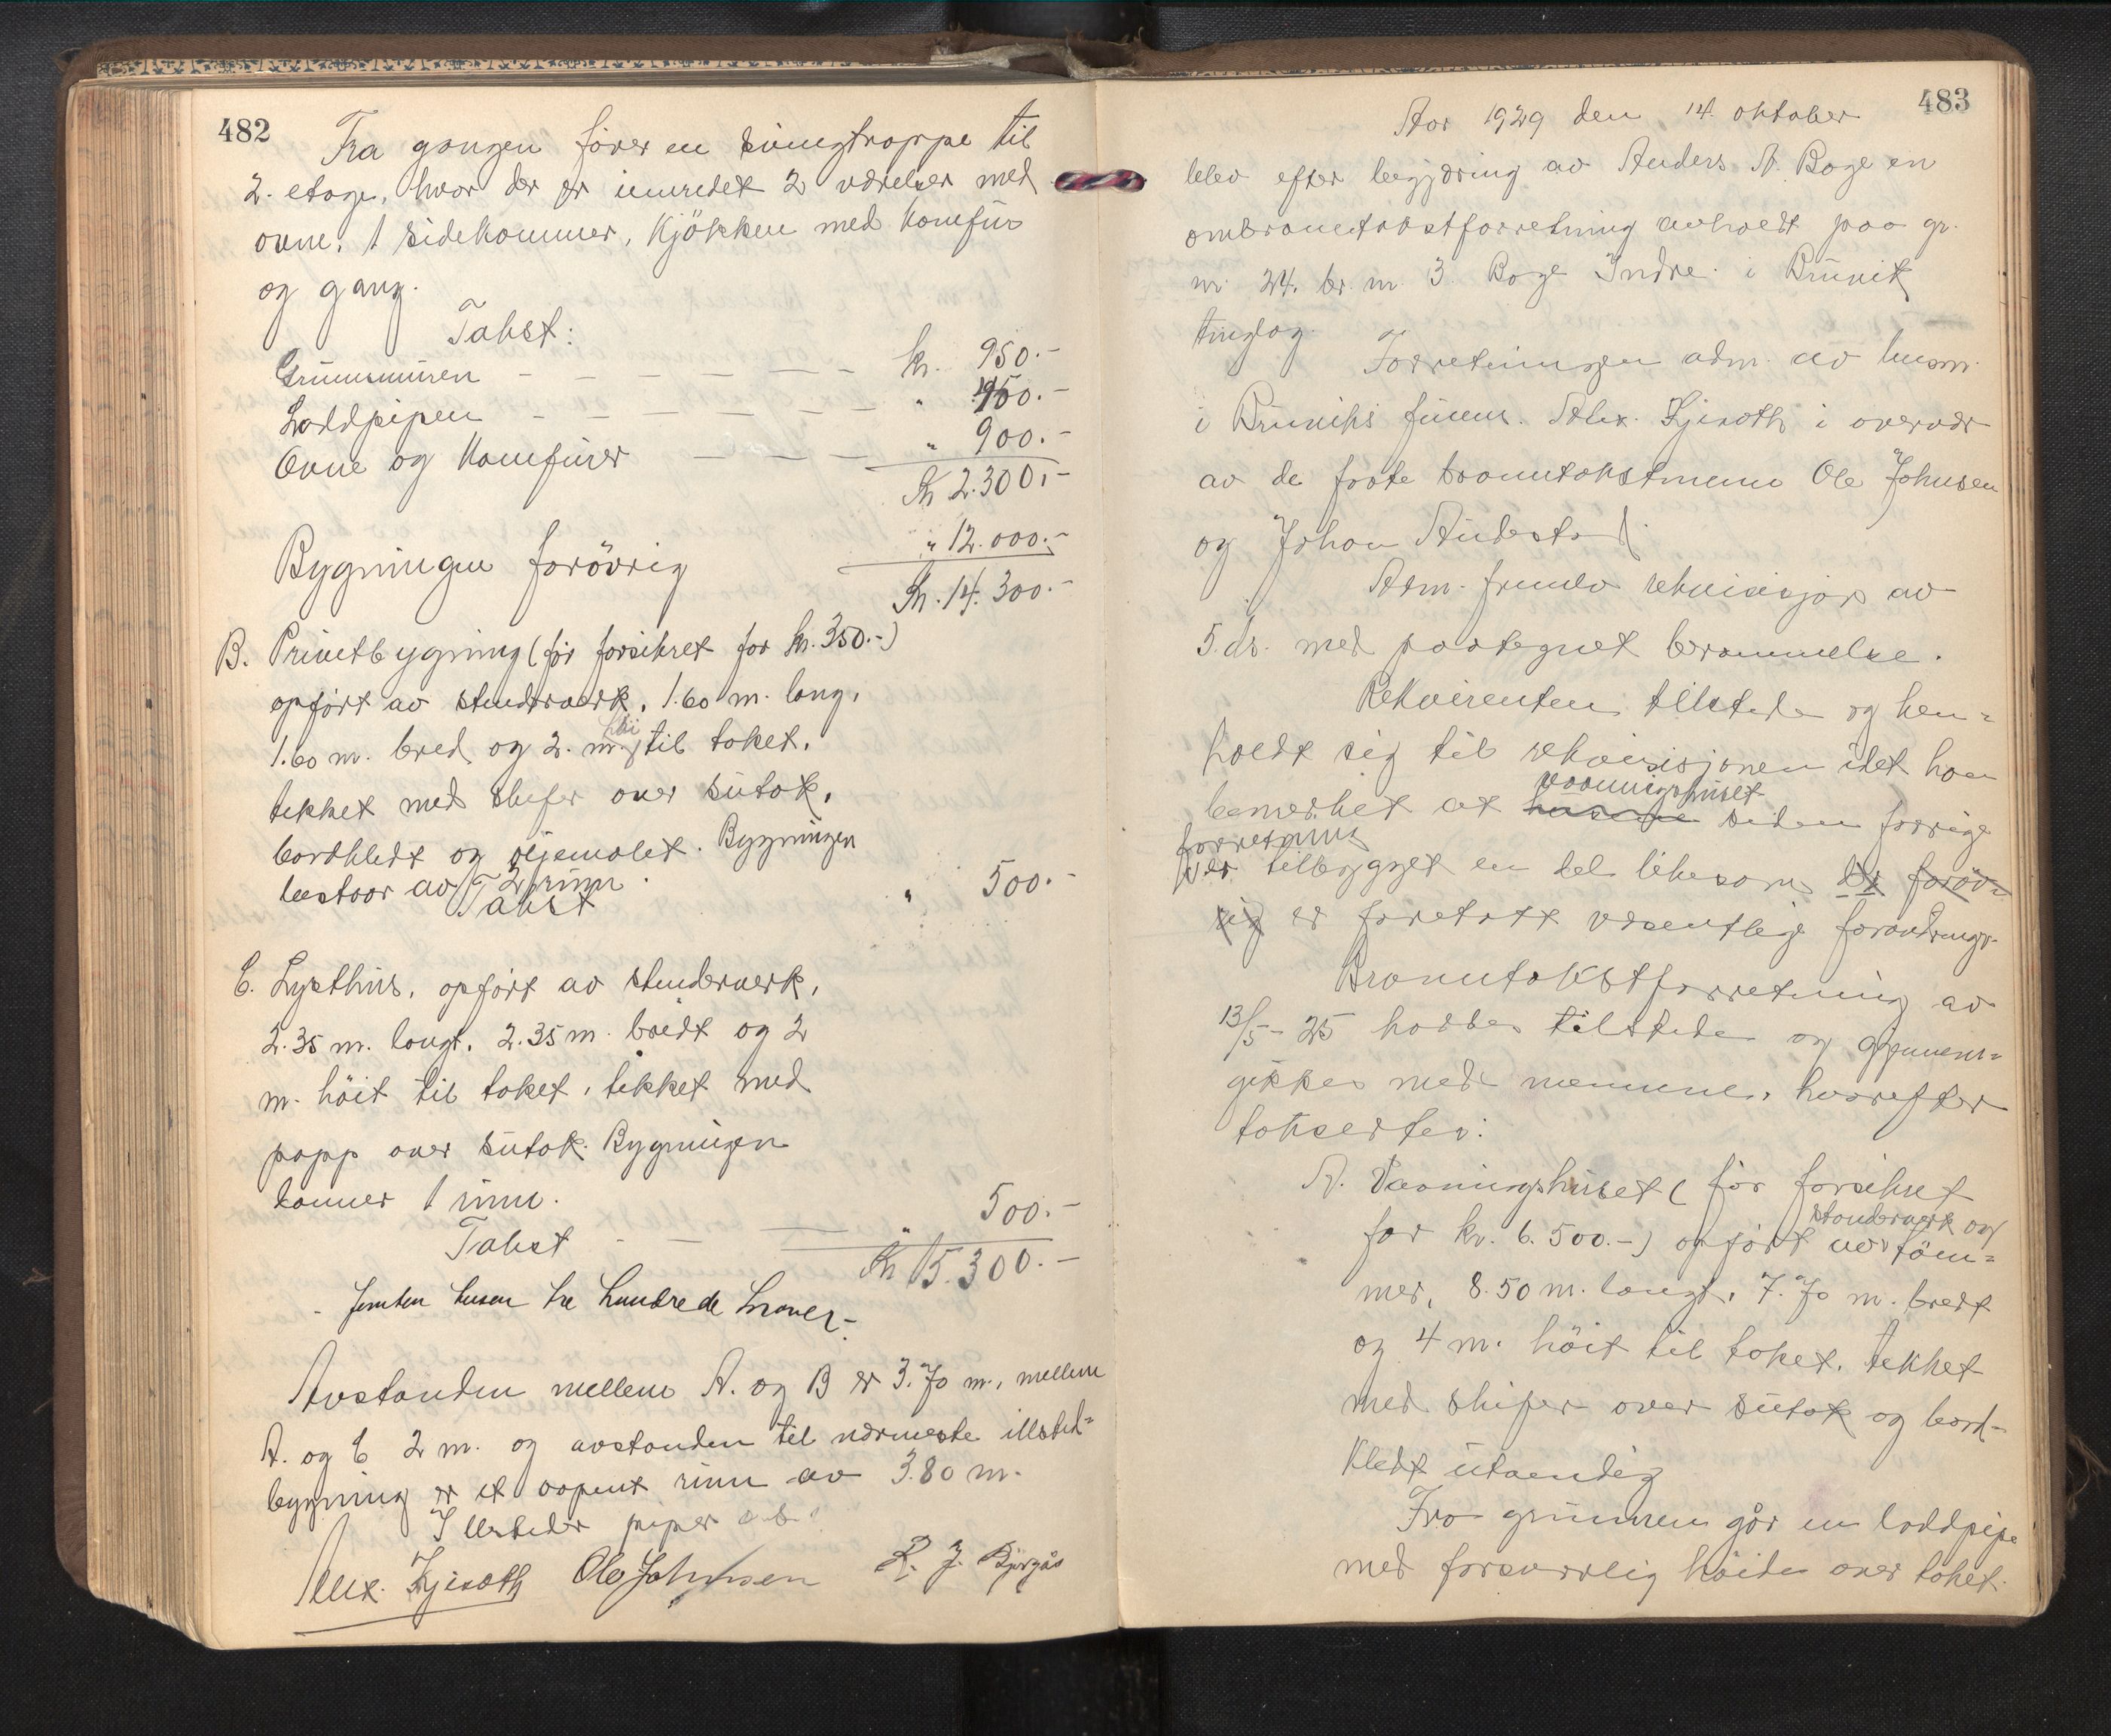 482
Fra gangen fører en svingtrappe til
2. etage, hvor der er innredet 2 værelser med
ovne, 1 sidekammer, kjøkken med komfür
og gang.
Takst:
Grünnmüren — — — — — kr. 950.-
Loddpipen — — — — — " 450.-
Ovne og komfürer — — — " 900.-
Kr 2.300.-
Bygningen forövrig " 12.000.-
Kr. 14.300.-
B. Privetbygning (før forsikret for kr. 350.-)
opført av stenderverk, 1.60 m. lang,
1.60 m. bred og 2. m. høi til taket,
tekket med skifer over sütak,
bordkledt og oljemalet. Bygningen
bestaar av 2 rüm.
Takst " 500.-
C. Lysthüs, opført av stenderverk,
2.35 m. langt, 2.35 m. bredt og 2
m. höit til taket, tekket med
papp over sütak. Bygningen
danner 1 rüm.
Takst — — " 500.-
Kr 15.300.-
- femten tusen tre hundrede kroner.-
Avstanden mellem A. og B er 3.70 m., mellem
A. og C 2 m. og avstanden til nærmeste illsted=
bygning er et aapent rüm av 3.80 m.
Illsteder piper
Alex. Gjeraath Ole Johnsen

483
Aar 1929 den 14 oktober
blev efter begjæring av Anders A. Boge en
ombranntakstforretning avholdt paa gr.
nr. 24. br. nr. 3 Boge Indre i Brüvik
tinglag.
Forretningen adm. av lensm.
i Brüviks fürem. Alex. Gjeraath i overvær
av de faste branntakstmenn Ole Johnsen
og Johan
Adm. fremla rekvisisjon av
5. ds. med paategnet berammelse.
Rekvirenten tilstede og hen=
holdt sig til rekvisisjonen idet han
bemerket at vaaningshüset siden forrige
forretning
er tilbygget en del likesom der forøv=
rig er foretatt væsentlige forandringer.
Branntakstforretning av
13/5-25 haddes tilstede og gjennem=
gikkes med mennene, hvorefter
taksertes:
A. Vaaningshüset (før forsikret
for kr. 6.500.-) opført av stenderverk og töm=
mer, 8.50 m. langt, 7.70 m. bredt
og 4 m. höit til taket, tekket
med skifer over sütak og bord-
kledt ütvendig
Fra grünnen går en loddpipe
med forsvarlig höide over taket.